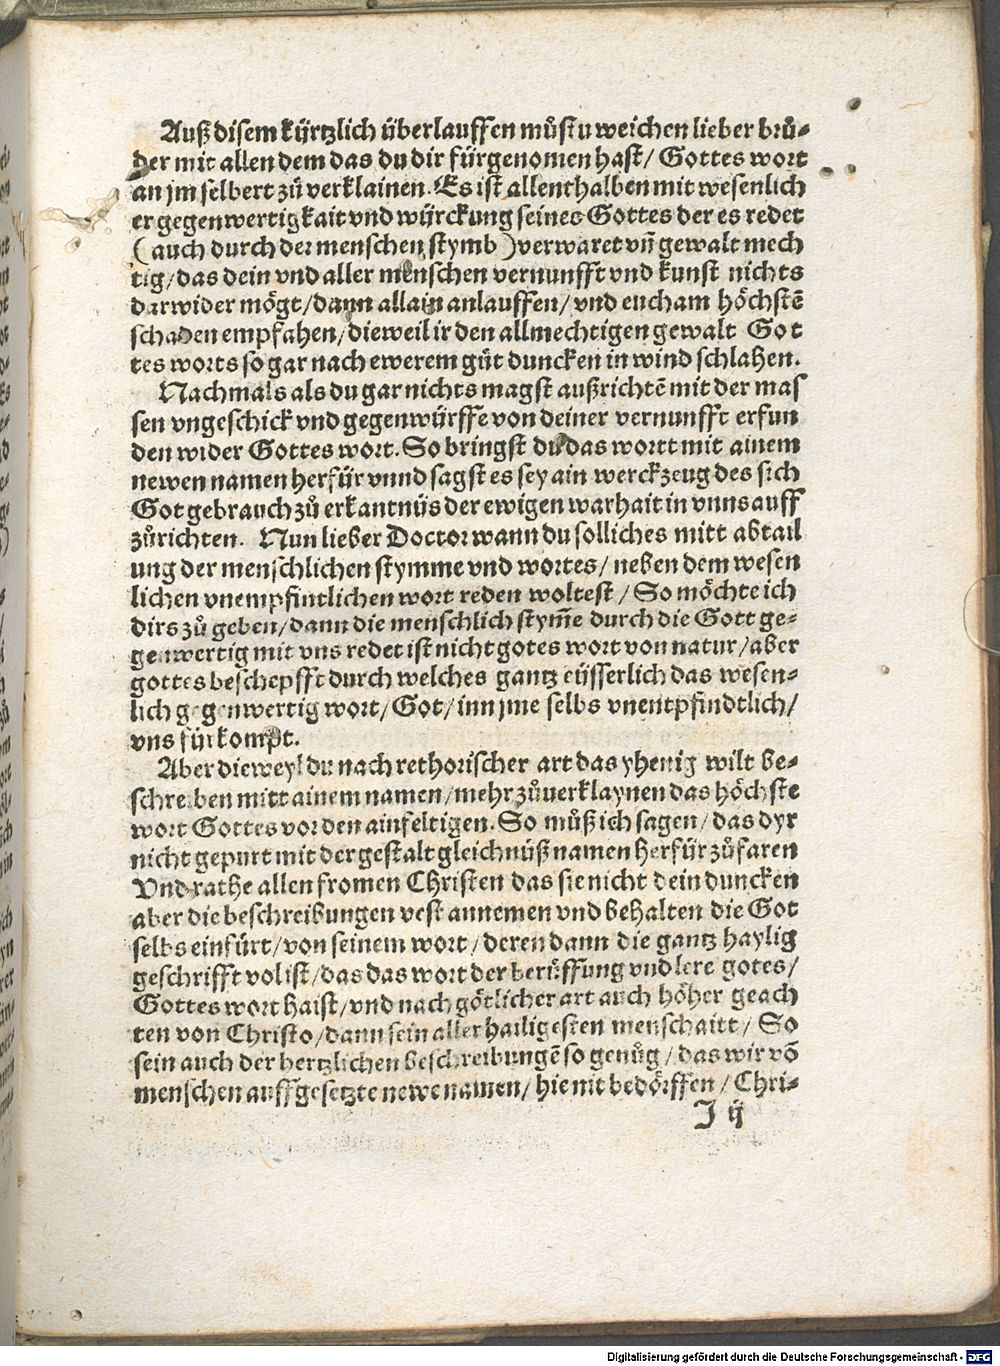 Auß disem kürtzlich überlauffen můstu weichen lieber brů-
der mit allen dem das du dir fürgenomen hast/ Gottes wort
an jm selbert zů verklainen. Es ist allenthalben mit wesenlich
er gegenwertigkait vnd würckung seines Gottes der es redet
( auch durch der menschen stymb ) verwaret vñ gewalt mech
tig/ das dein vnd aller menschen vernunfft vnd kunst nichts
darwider mögt/ dann allain anlauffen/ vnd euch am höchstẽ
schaden empfahen/ dieweil ir den allmechtigen gewalt Got
tes worts so gar nach ewerem gůt duncken in wind schlahen.
Nachmals als du gar nichts magst außrichtẽ mit der mas
sen vngeschick vnd gegenwürffe von deiner vernunfft erfun
den wider Gottes wort. So bringst du das wortt mit ainem
newen namen herfür vnnd sagst es sey ain werckzeug des sich
Got gebrauch zů erkantnüs der ewigen warhait in vnns auff
zůrichten. Nun lieber Doctor wann du solliches mitt abtail
ung der menschlichen stymme vnd wortes/ neben dem wesen
lichen vnempfintlichen wort reden woltest/ So möchte ich
dirs zů geben/ dann die menschlich stym̃e durch die Gott ge-
genwertig mit vns redet ist nicht gotes wort von natur/ aber
gottes beschepfft durch welches gantz eüsserlich das wesen-
lich gegenwertig wort/ Got/ inn jme selbs vnentpfindtlich/
vns fürkompt.
Aber dieweyl du nach rethorischer art das yhenig wilt be-
schreiben mitt ainem namen/ mehr zůuerklaynen das höchste
wort Gottes vor den ainfeltigen. So můß ich sagen/ das dyr
nicht gepurt mit der gestalt gleichnüß namen herfür zůfaren
Vnd rathe allen fromen Christen das sie nicht dein duncken
aber die beschreibungen vest annemen vnd behalten die Got
selbs einfürt/ von seinem wort/ deren dann die gantz haylig
geschrifft vol ist/ das das wort der berüffung vnd lere gotes/
Gottes wort haist/ vnd nach götlicher art auch höher geach
ten von Christo/ dann sein aller hailigesten menschaitt/ So
sein auch der hertzlichen beschreibungẽ so genůg/ das wir võ
menschen auffgesetzte newe namen/ hie nit bedörffen/ Chri-
J ij
Digitalisierung gefördert durch die Deutsche Forschungsgemeinschaft - DFG